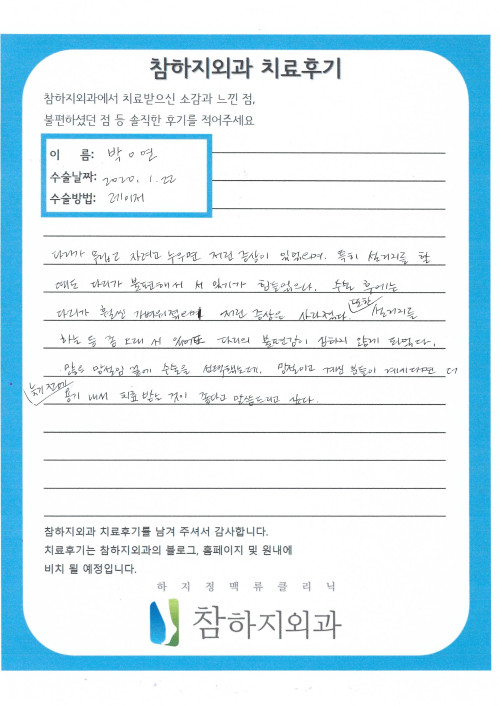 참하지외과 치료후기
참하지외과에서 치료받으신 소감과 느낀 점,
불편하셨던 점 등 솔직한 후기를 적어주세요
이 름: 박ㅇ연
수술날짜: 2020. 1. 22
수술방법: 레이저
다리가 무겁고 자려고 누우면 저린 증상이 있었으며. 특히 설거지를 할
때도 다리가 불편해서 서 있기가 힘들었으나. 수술 후에는
다리가 훨씬 가벼워졌으며 저린 증상은 사라졌다 또한 설거지를
하는 등 좀 오래 서 있어도 다리의 불편감이 심하지 않게 되었다.
많은 망설임 끝에 수술을 선택했는데. 망설이고 계신 분들이 계시다면 더
늦기 전에
용기 내서 치료 받는 것이 좋다고 말씀드리고 싶다.
참하지외과 치료후기를 남겨 주셔서 감사합니다.
치료후기는 참하지외과의 블로그, 홈페이지 및 원내에
비치 될 예정입니다.
하지정맥류클리닉
참하지외과